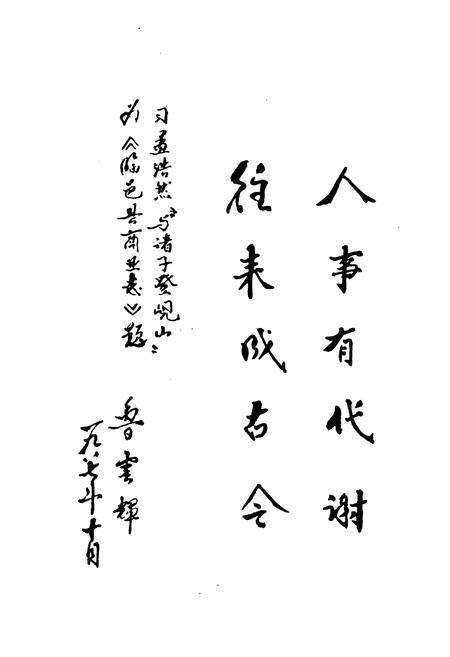 人事有代谢
往来成古今
习孟浩然“与诸子登岘山”
为《临邑县商业志》题
鲁雲輝
一九八七年十月